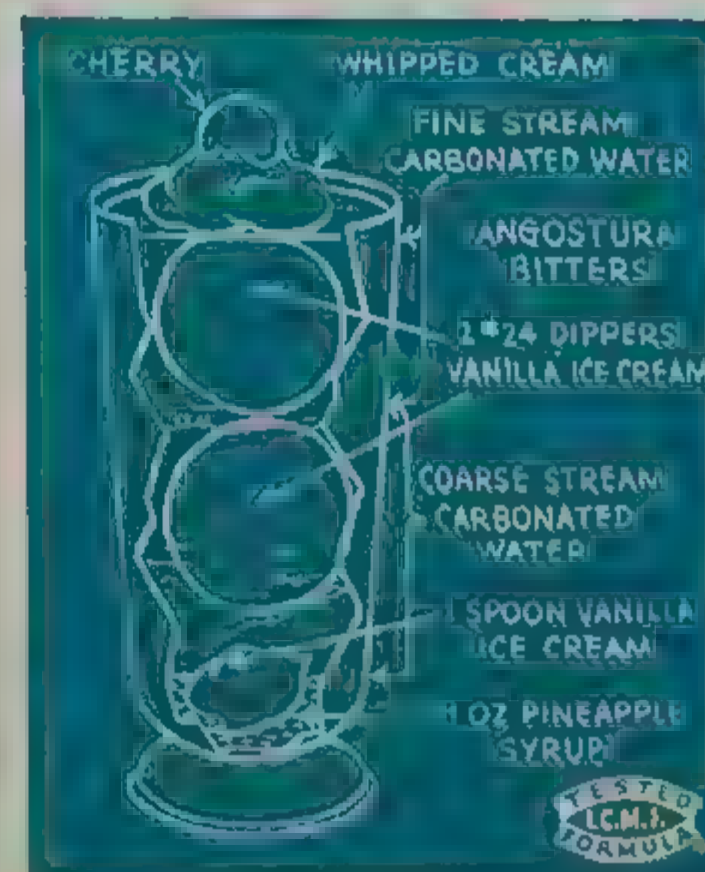 CHERRY
WHIPPED CREAM
FINE STREAM
CARBONATED WATER
ANGOSTURA
BITTERS
#24 DIPPERS
VANILLA ICE CREAM
COARSE STREAM
CARBONATED
WATER
SPOON VANILLA
ICE CREAM
1 OZ PINEAPPLE
SYRUP
TESTED
FORMULA